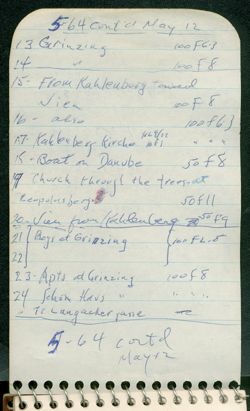 5-64 cont'd May 12
13 Grinzing 100 f 6.3
14 " 100 f 8
15 - From Kahlenberg toward
Vien 100 F 8
16 - also 100 f 6.3
17. Kahlenberg Kirche " " "
18 - Boat on Danube 50 f 8
19 Church through the trees at
Leopoldsberg 50 f 11
20 - View from Kahlenberg 50 f 9
21 Boys at Grinzing 100
22
23 - Apts at Grinzing 100 f 8
24 Schön Haus " " " "
Langackergasse
5 - 64 cont'd
May 12